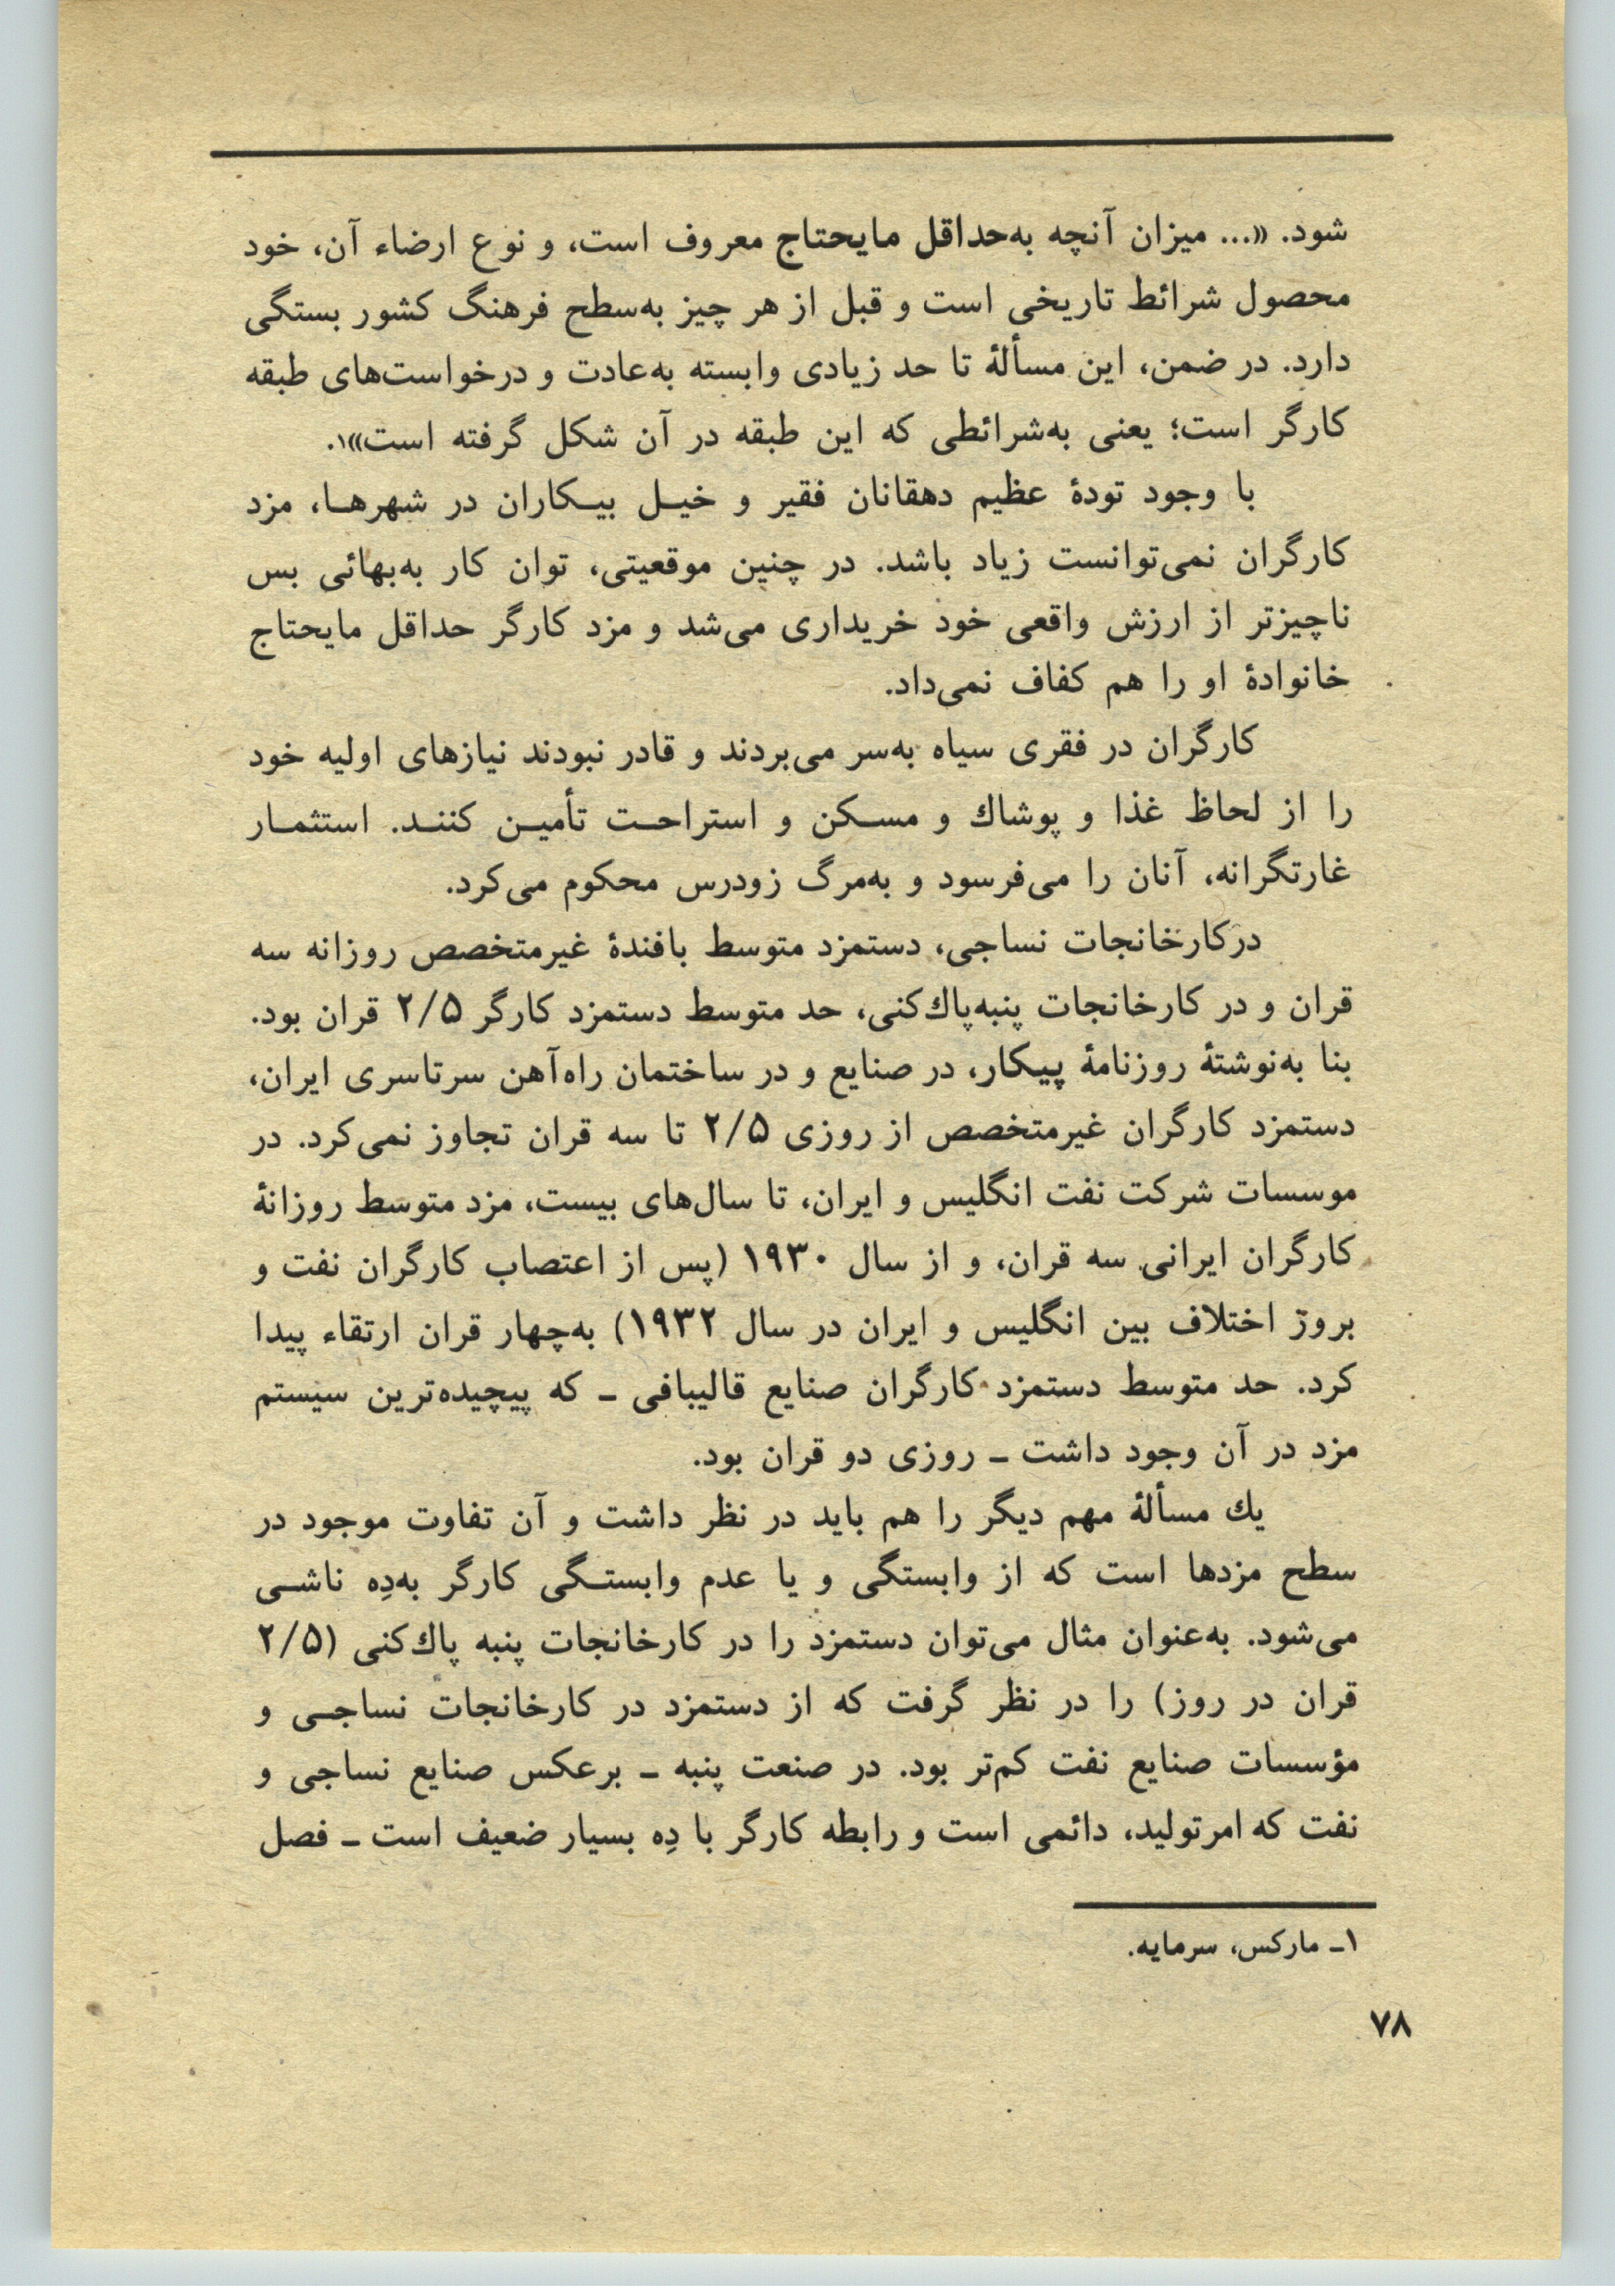 شود. «... میزان آنچه به‌حداقل مایحتاج معروف است، و نوع ارضاء آن، خود
محصول شرائط تاریخی است و قبل از هر چیز به‌سطح فرهنگ کشور بستگی
دارد. در ضمن، این مسألهٔ تا حد زیادی وابسته به‌عادت و درخواست‌های طبقه
کارگر است؛ یعنی به‌شرائطی که این طبقه در آن شکل گرفته است»۱.
با وجود تودهٔ عظیم دهقانان فقیر و خیـل بیـکاران در شهرهـا، مزد
کارگران نمی‌توانست زیاد باشد. در چنین موقعیتی، توان کار به‌بهائی بس
ناچیزتر از ارزش واقعی خود خریداری می‌شد و مزد کارگر حداقل مایحتاج
خانوادهٔ او را هم کفاف نمی‌داد.
کارگران در فقری سیاه به‌سر می‌بردند و قادر نبودند نیازهای اولیه خود
را از لحاظ غذا و پوشاك و مسـکن و استراحـت تأمیـن کننـد. استثمـار
غارتگرانه، آنان را می‌فرسود و به‌مرگ زودرس محکوم می‌کرد.
درکارخانجات نساجی، دستمزد متوسط بافندهٔ غیرمتخصص روزانه سه
قران و در کارخانجات پنبه‌پاك‌کنی، حد متوسط دستمزد کارگر ۲/۵ قران بود.
بنا به‌نوشتهٔ روزنامهٔ پیکار، در صنایع و در ساختمان راه‌آهن سرتاسری ایران،
دستمزد کارگران غیرمتخصص از روزی ۲/۵ تا سه قران تجاوز نمی‌کرد. در
موسسات شرکت نفت انگلیس و ایران، تا سال‌های بیست، مزد متوسط روزانهٔ
کارگران ایرانی سه قران، و از سال ۱۹۳۰ (پس از اعتصاب کارگران نفت و
بروز اختلاف بین انگلیس و ایران در سال ۱۹۳۲) به‌چهار قران ارتقاء پیدا
کرد. حد متوسط دستمزد کارگران صنایع قالیبافی ـ که پیچیده‌ترین سیستم
مزد در آن وجود داشت ـ روزی دو قران بود.
یك مسألهٔ مهم دیگر را هم باید در نظر داشت و آن تفاوت موجود در
سطح مزدها است که از وابستگی و یا عدم وابستـگی کارگر به‌دِه ناشـی
می‌شود. به‌عنوان مثال می‌توان دستمزد را در کارخانجات پنبه پاك‌کنی (۲/۵
قران در روز) را در نظر گرفت که از دستمزد در کارخانجات نساجـی و
مؤسسات صنایع نفت کم‌تر بود. در صنعت پنبه ـ برعکس صنایع نساجی و
نفت که امرتولید، دائمی است و رابطه کارگر با دِه بسیار ضعیف است ـ فصل
۱ـ مارکس، سرمایه.
۷۸